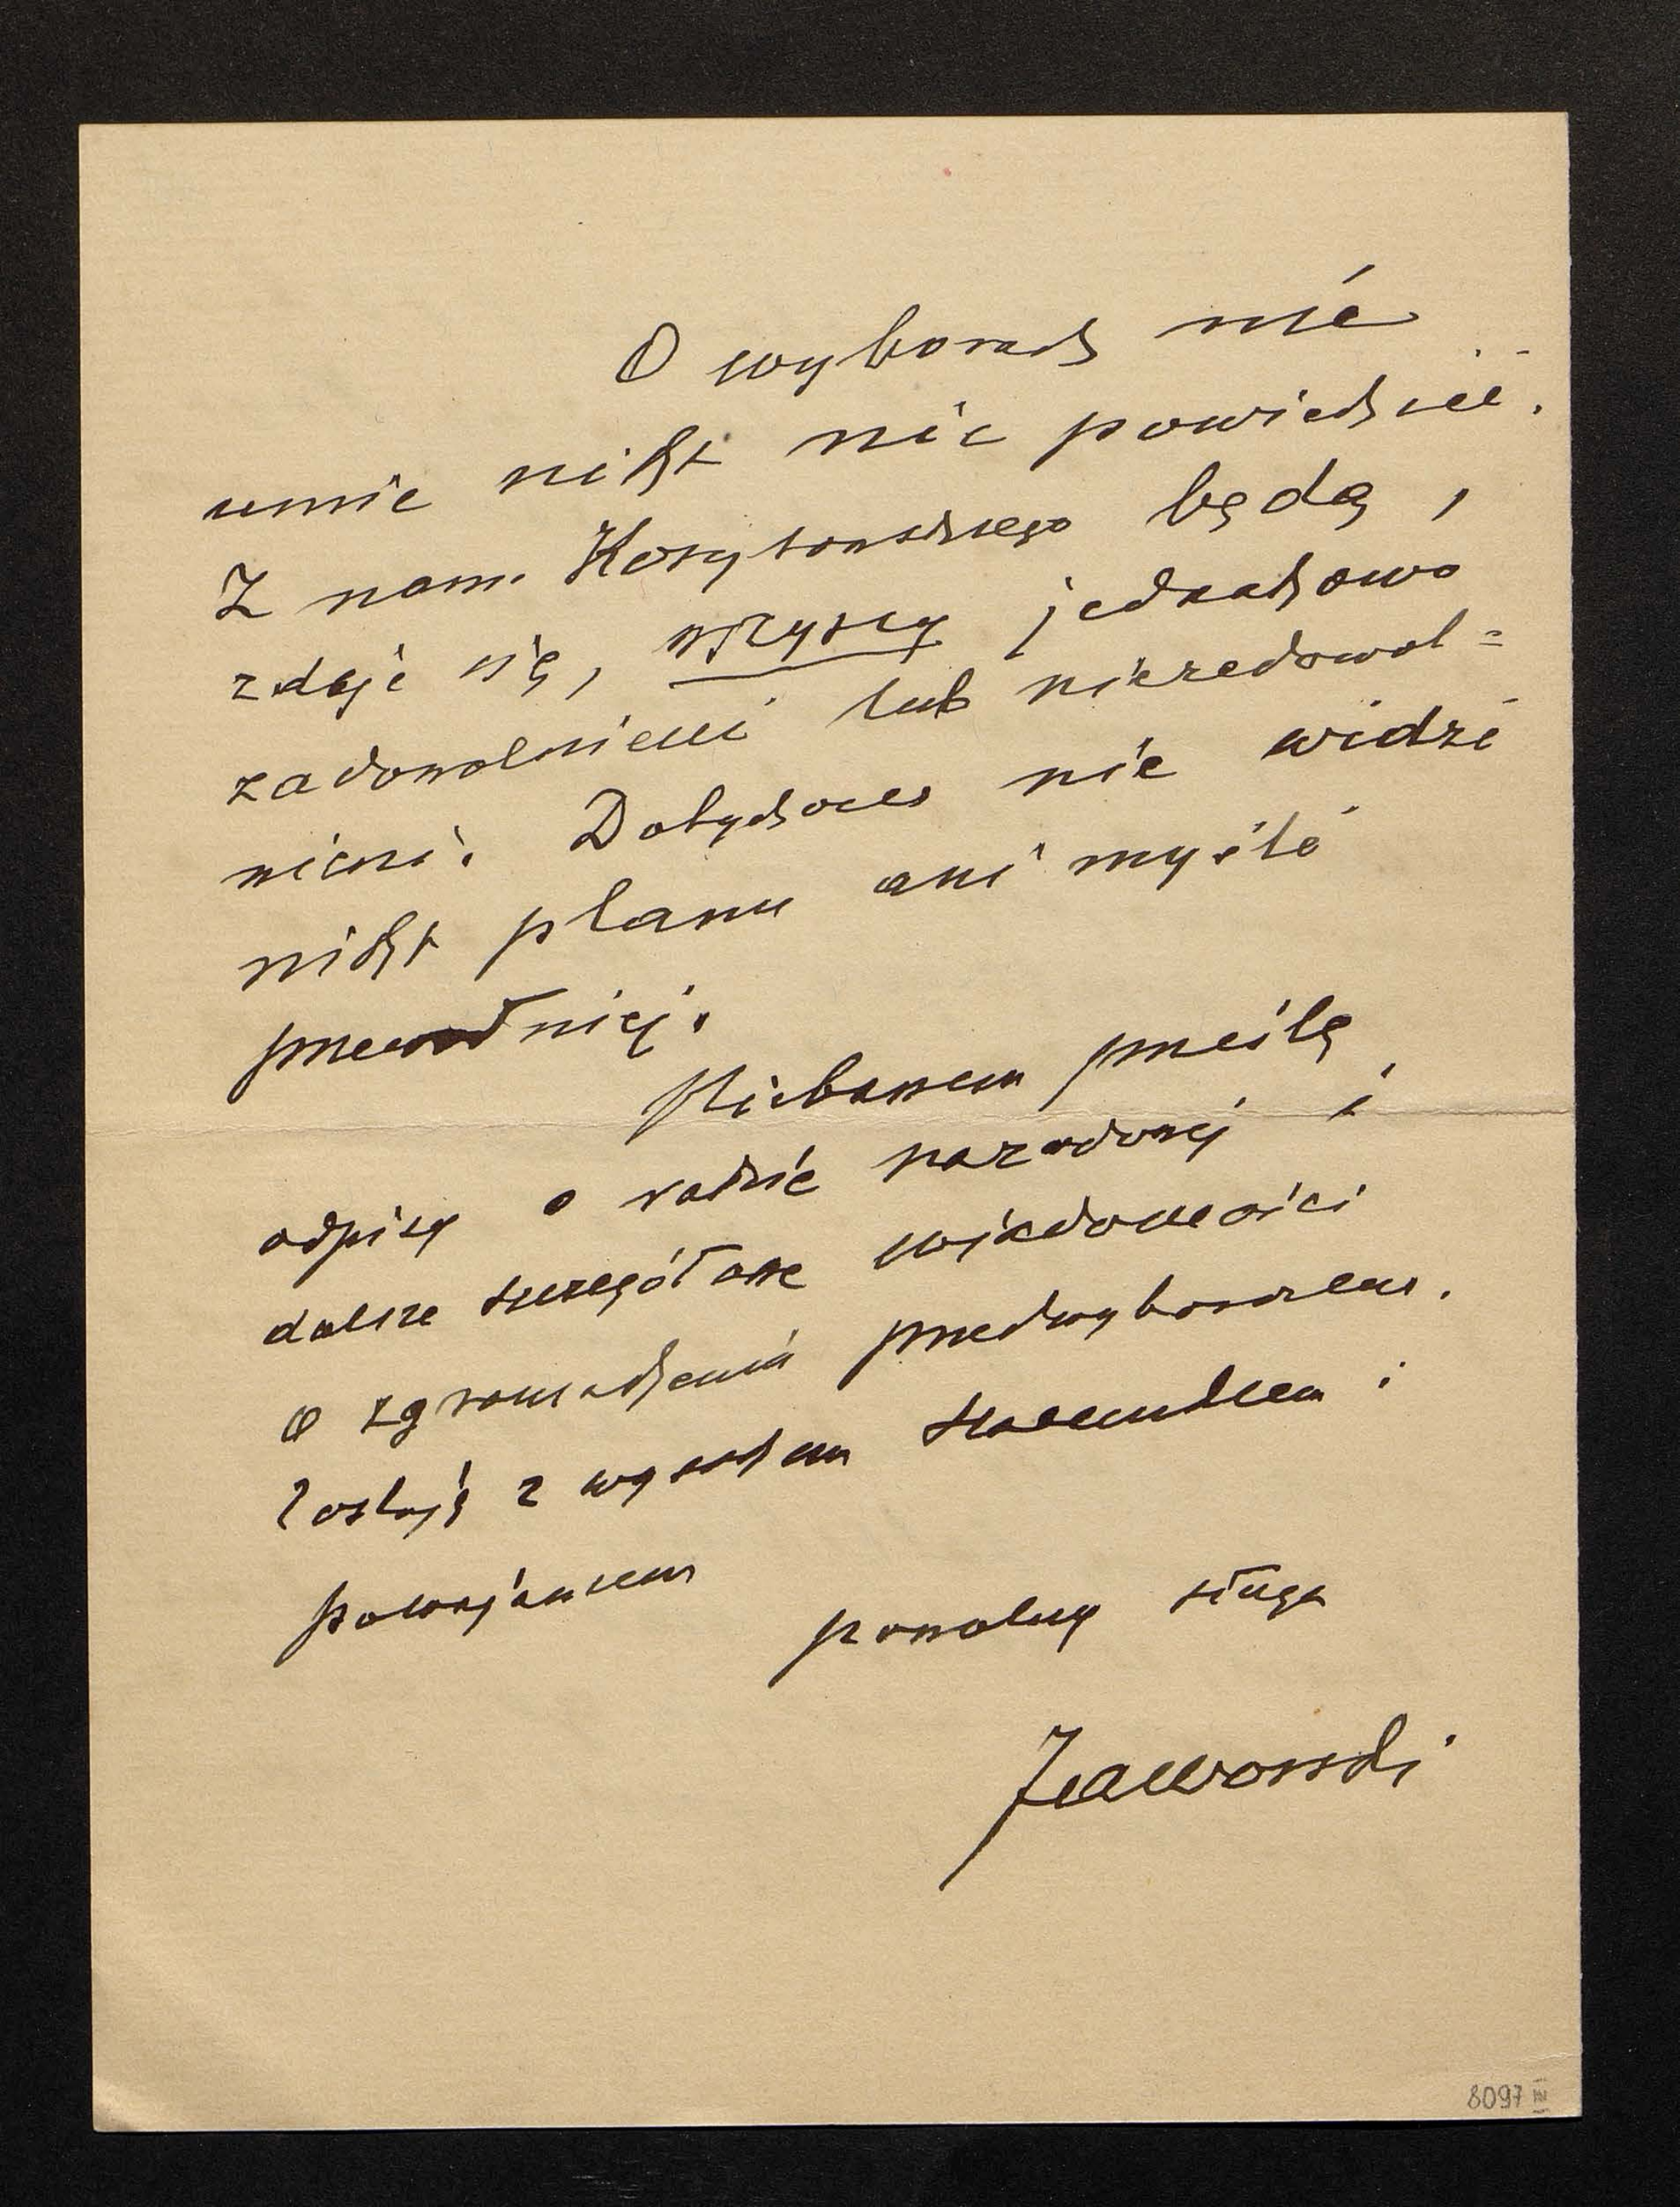 O wyborach nie
umie nikt nic powiedzieć.
Z nam. Korytowskiego będą,
zdaje się, wszyscy jednakowo
zadowolnieni lub niezadowol=
nieni. Dotychczas nie widzi
nikt planu ani myśli
przewodniej.
Niebawem prześlę
odpisy o radzie narodowej i
dalsze szczegółowe wiadomości
o zgromadzeniu przedwyborczem.
Zostaję z wysokiem szacunkiem i
poważaniem
powolny sługa
Jaworski
8097 III